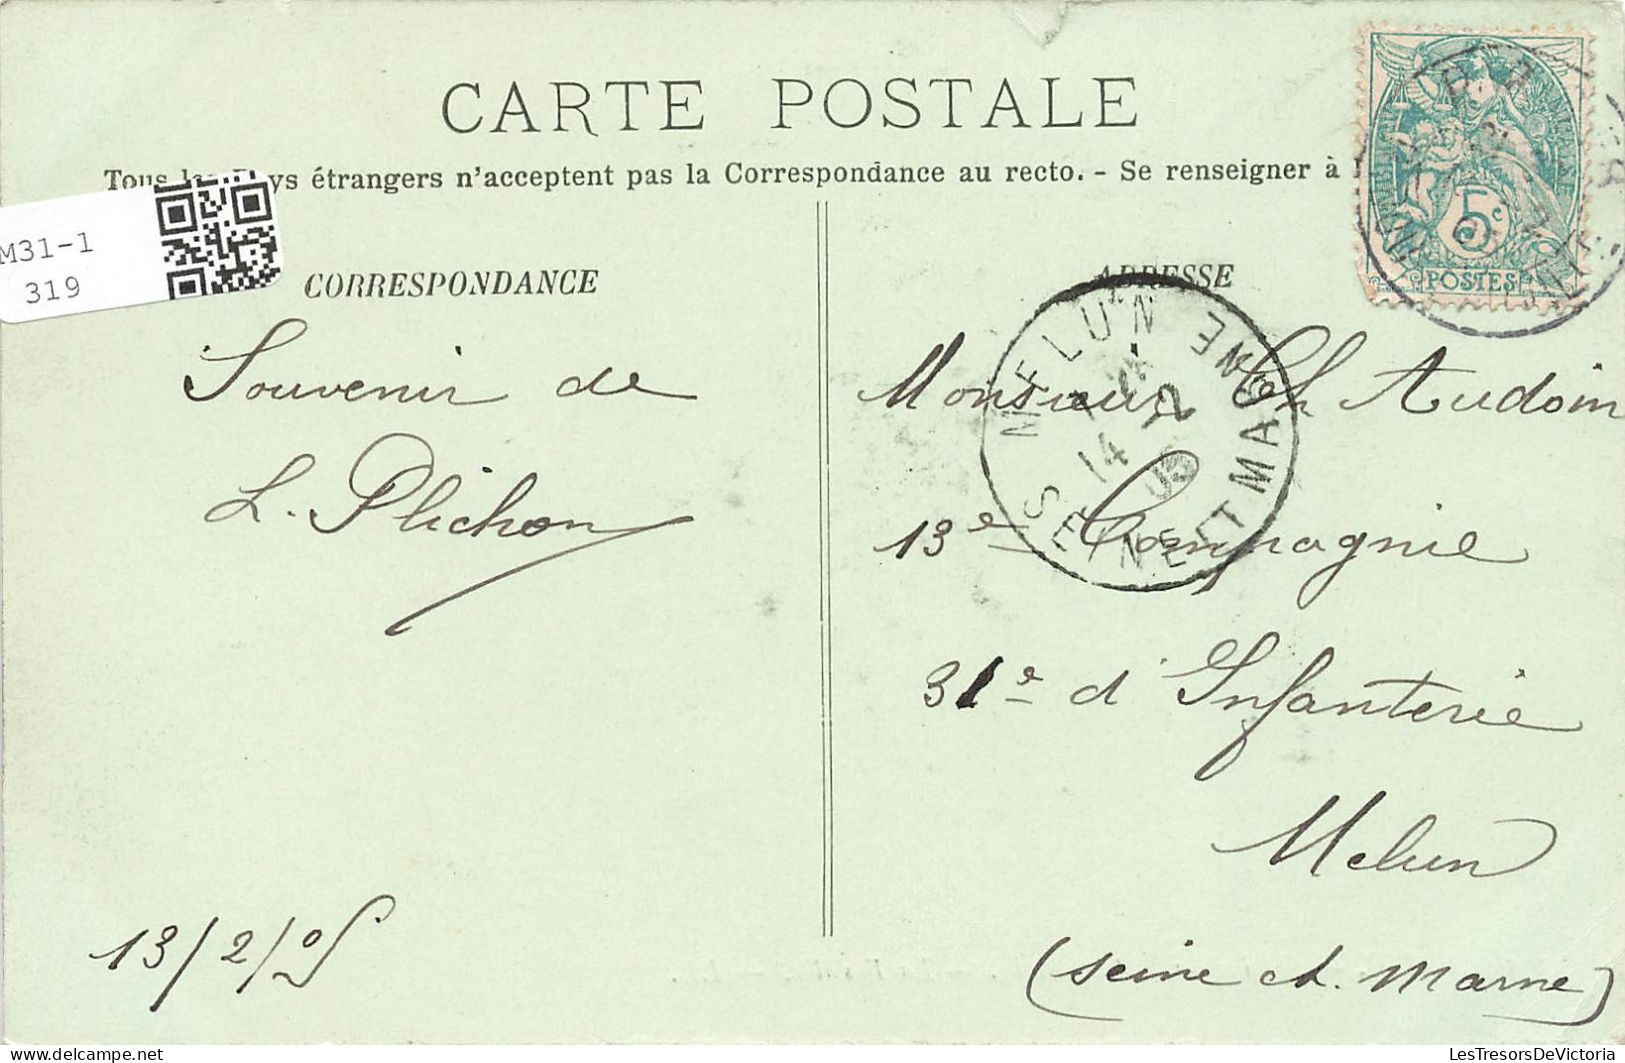 CARTE POSTALE
Tous les Pays étrangers n'acceptent pas la Correspondance au recto. - Se renseigner à
M31-1
319
CORRESPONDANCE
Souvenir de
L. Plichon
13/2/05
ADRESSE
Monsieur Ch Audoin
13e Compagnie
31e d'Infanterie
Melun
(Seine et. Marne)
MELUN
14 2 05
SEINE ET MARNE
5c
POSTES
LesTresorsDeVictoria.com
LesTresorsDeVictoria